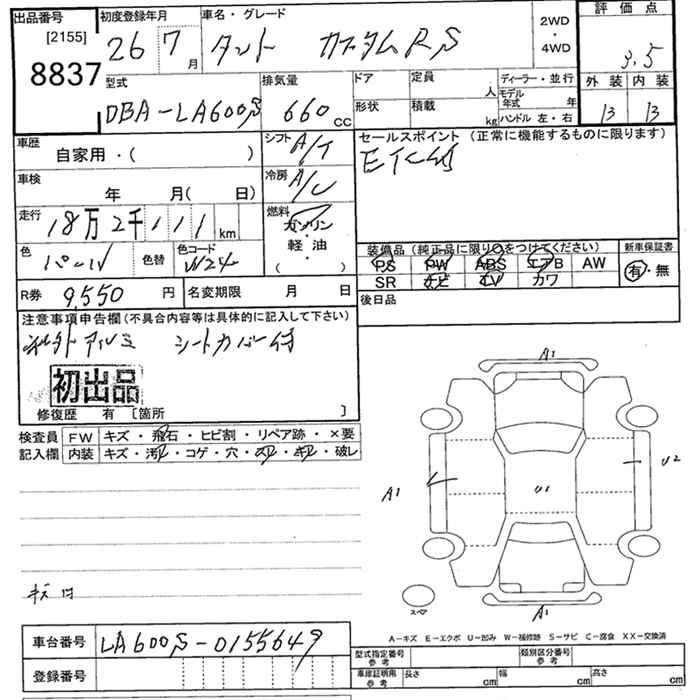 出品番号 [2155] 8837
初度登録年月 26 7月
車名・グレード タント カスタムRS
2WD・4WD
評価点 3.5
外装 内装
13 13
型式 DBA-LA600S
排気量 660cc
ドア 定員 人
形状 積載 kg
ディーラー・並行
モデル年式 年
ハンドル 左・右
車歴 自家用・( )
シフト A/T
セールスポイント (正常に機能するものに限ります)
ETC付
車検 年 月( 日)
冷房 A/C
走行 18万2千111km
燃料 ガソリン・軽油 ( )
色 パール
色替
色コード W24
装備品 (純正品に限り○をつけてください)
PS PW ABS エアB AW
SR ナビ TV カワ
新車保証書 有・無
R券 9,550円
名変期限 月 日
後日品
注意事項申告欄 (不具合内容等は具体的に記入して下さい)
社外アルミ シートカバー付
初出品
修復歴 有 [箇所 ]
検査員記入欄
FW キズ・飛石・ヒビ割・リペア跡・×要
内装 キズ・汚レ・コゲ・穴・スレ・キレ・破レ
A1
A1
U2
U1
スペア
A1
A-キズ E-エクボ U-凹み W-補修跡 S-サビ C-腐食 XX-交換済
車台番号 LA600S-0155649
登録番号
型式指定番号 参考
類別区分番号 参考
車庫証明用 参考 長さ cm 幅 cm 高さ cm